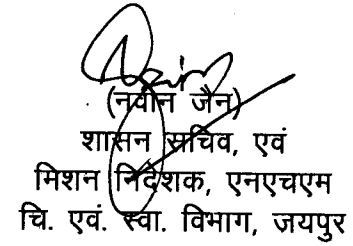 (नवीन जैन)
शासन सचिव, एवं
मिशन निदेशक, एनएचएम
चि. एवं. स्वा. विभाग, जयपुर